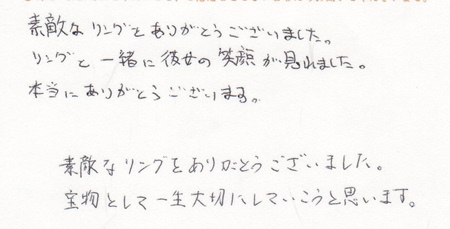 素敵なリングをありがとうございました。
リングと一緒に彼女の笑顔が見れました。
本当にありがとうございます。
素敵なリングをありがとうございました。
宝物として一生大切にしていこうと思います。